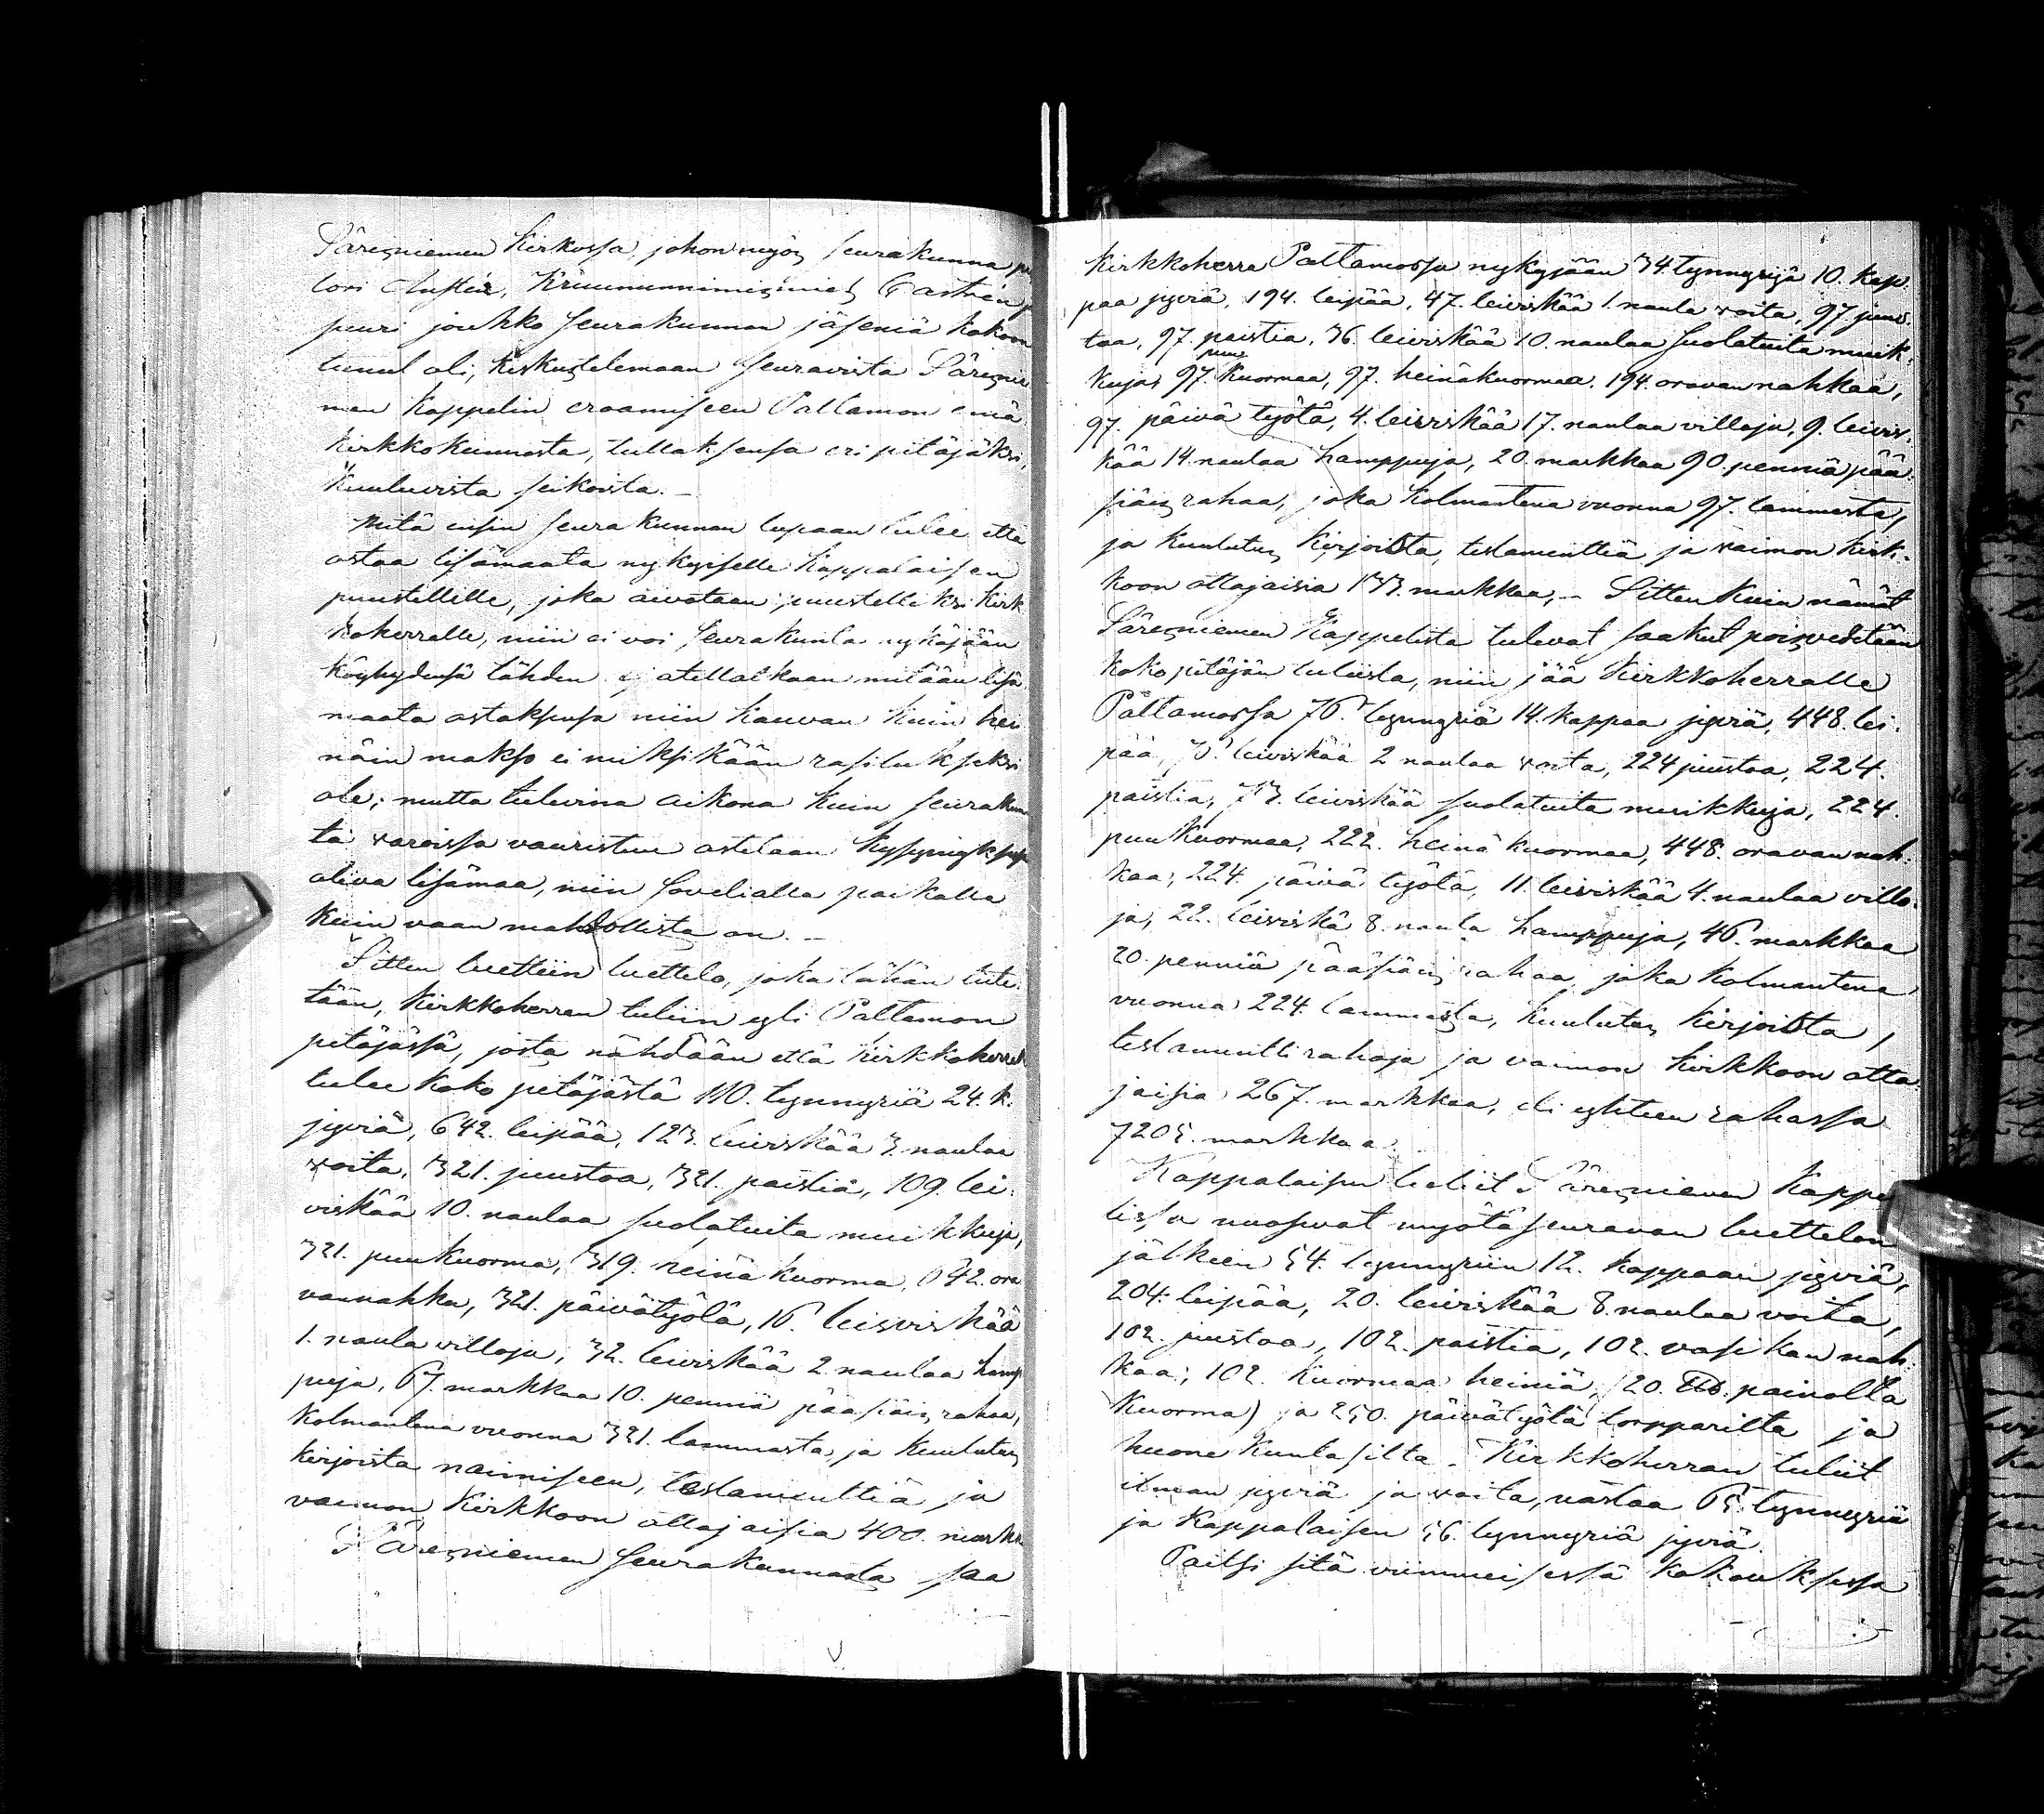 Säresniemen Kirkossa, johon myös seurakunna
tori Kruununnimismies Castrén
suuri joukko seurakunnan jäseniä kokoon
tunut oli, keskustelemaan seuravista Säresnie
men Kappelin eroamiseen Paltamon emä
kirkkokunnasta, tullaksensa eri pitäjäksi,
kuuluvista seikoista. –
Mitä ensin seurakunnan lupaan tulee että
ostaa lisämaata nykyiselle Kappalaisen
puustellille, joka aivotaan puustelliksi Kirk
koherralle, niin ei voi seurakunta nykäjään
köyhydensä tähden ajatellakkaan mitään lisä
maata ostaksensa niin kauvan kuin hei
näin makso ei miksikään rasitukseksi
ole; mutta tulevina aikona kuin seurakun
ta varoissa vauristuu ostetaan kysymyksesä
oliva lisämaa, niin sovelialla paikalla
kuin vaan mahdollista on. –
Sitten luettiin luettelo, joka tähän liite
tään, Kirkkoherran tuloin yli Paltamon
pitäjässä, josta nähdään että Kirkkoherralle
tulee koko pitäjästä 110. tynnyriä 24. k.
jyviä, 642. leipää, 123. leiviskää 3 naulaa
voita, 321. juustoa, 321. paistia, 109. lei-
viskää 10. naulaa suolatuita muikkuja,
321. puukuorma, 319. heinäkuorma, 642. ora
vannahka, 321. päivätyötä, 16. leiviskää
1. naula villoja, 32. leiviskää 2 naulaa hamp
puja, 67. markkaa 10. penniä pääsiäis rahaa,
Kolmantena vuonna 321. lammasta, ja kuulutus
kirjoista naimiseen, testamenttiä ja
vaimon Kirkkoon ottajaisia 400. markk
Säresniemen seurakunnasta saa
Kirkkoherra Paltamossa nykyjään 34 tynnyriä 10. kap-
paa jyviä, 194. leipää, 47. leiviskää 1. naula voita, 97. juus-
toa, 97. paistia, 36. leiviskää 10. naulaa suolatuita muik-
kuja, 97. puu kuormaa, 97. heinäkuormaa, 194. oravan nahkaa,
97. päivä työtä, 4. leiviskää 17. naulaa villoja, 9. leivis-
kää 14. naulaa hamppuja, 20. markkaa 90. penniä pää-
siäis rahaa, joka Kolmantena vuonna 97. lammasta,
ja kuulutus kirjoista, testamenttiä ja vaimon kirk-
koon ottajaisia 133. markkaa, – Sitten kuin nämät
Säresniemen Kappelista tulevat saakut pois vedetään
koko pitäjän tuloista, niin jää Kirkkoherralle
Paltamossa 76. tynnyriä 14. kappaa jyviä, 448. lei-
pää, leiviskää 2 naulaa voita, 224 juustoa, 224.
paistia, 73. leiviskää suolatuita muikkuja, 224.
puukuormaa, 222. heinä kuormaa, 448. oravan nah-
kaa, 224. päivä työtä, 11. leiviskää 4. naulaa villo-
ja, 22. leiviskä 8. naula hamppuja, 46. markkaa
20. penniä pääsiäis rahaa, joka Kolmantena
vuonna 224. lammasta, kuulutus kirjoista,
testamentti rahoja ja vaimon Kirkkoon otta-
jaisia 267. markkaa, eli yhteen rahassa
7205. markkaa.
Kappalaisen tuloit Säresniemen Kappe
lissa nousevat myötäseuravan luettelon
jälkeen 54. tynnyriin 12. kappaan jyviä,
204. leipää, 20. leiviskää 8. naulaa voita,
102. juustoa, 102. paistia, 102. vasikan nah-
kaa, 102. kuormaa heiniä, (20. painolta
kuorma) ja 250. päivätyötä torpparilta ja
huone kuntasilta. Kirkkoherran tuloit
ilman jyviä ja voita, vastaa 65. tynnyriä
ja Kappalaisen 56. tynnyriä jyviä.
Paitsi sitä viimmeisessä kokouksessa